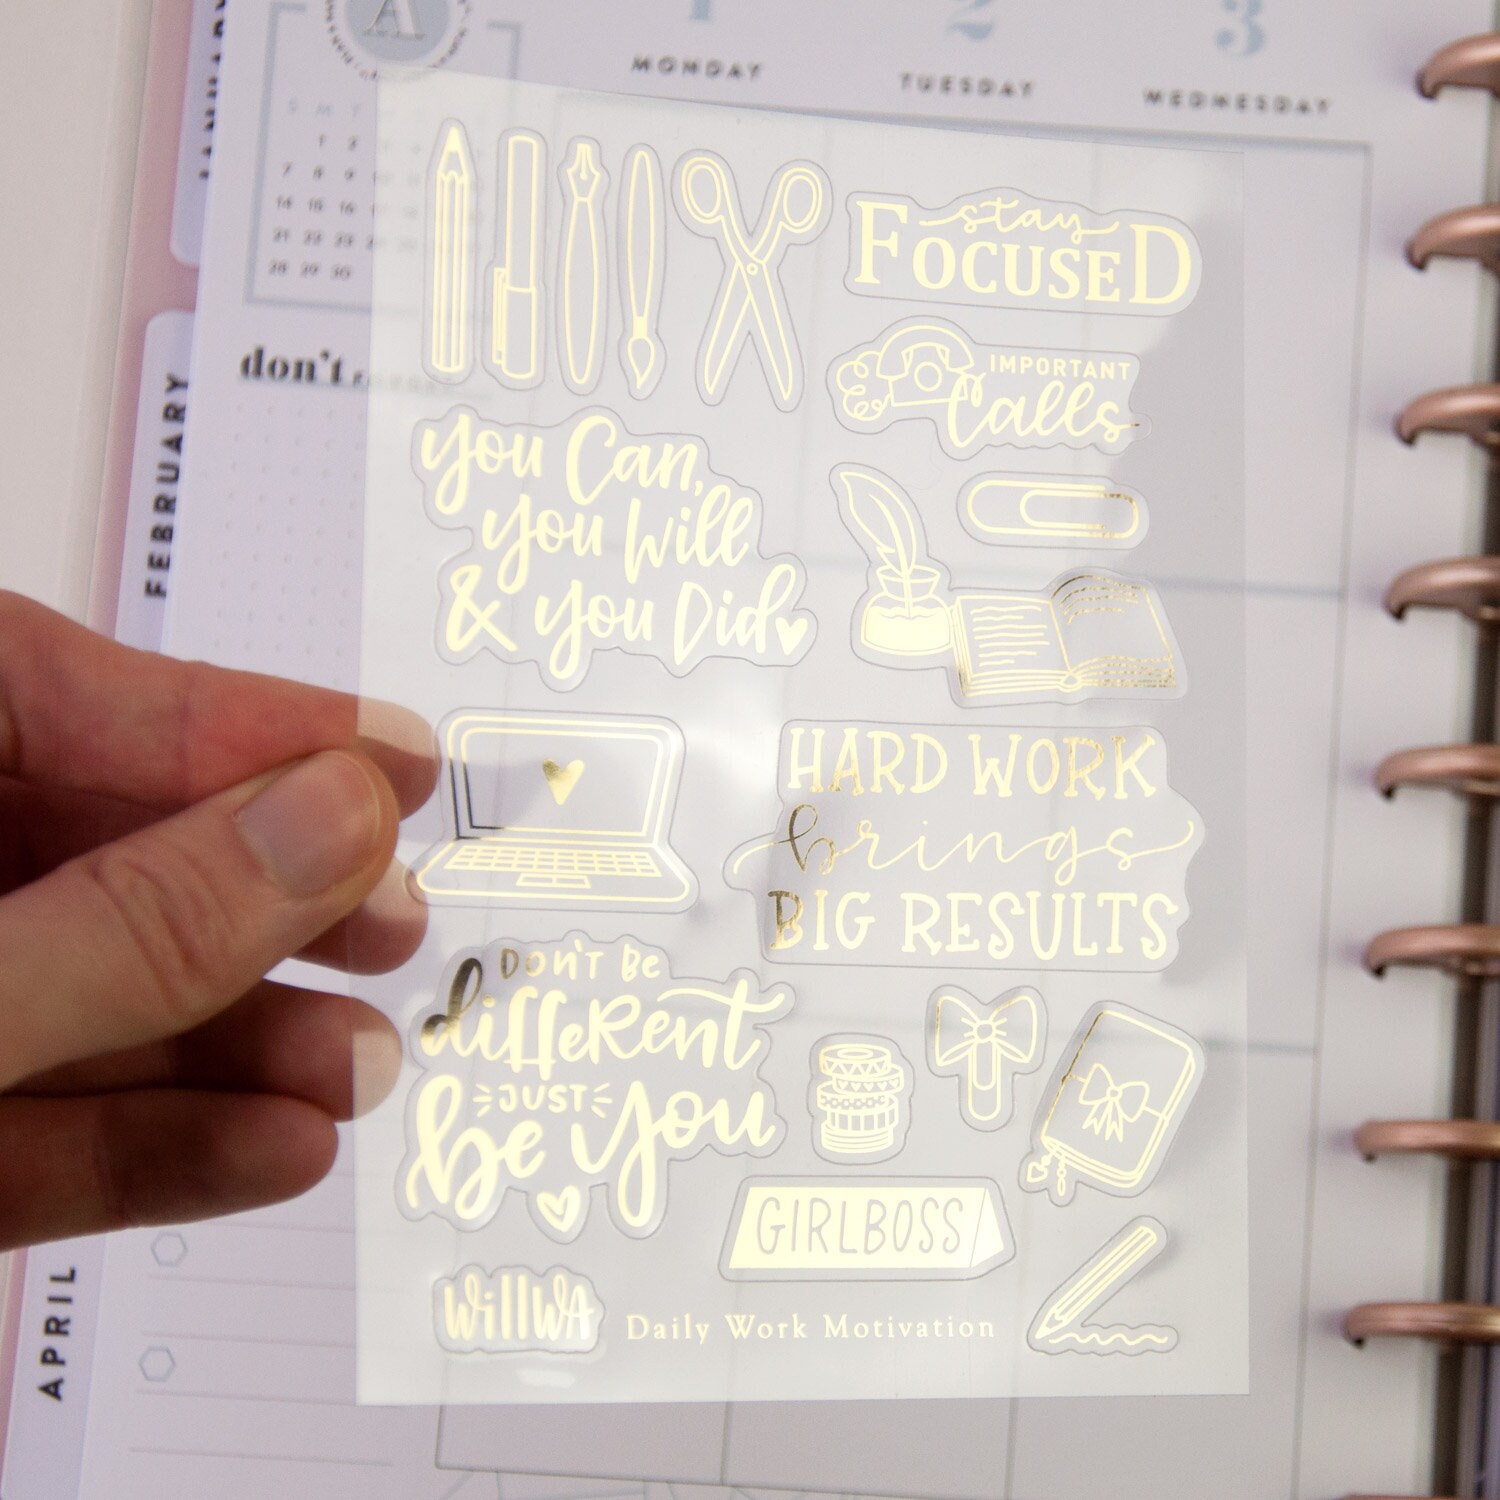 A
1
2
3
MONDAY
TUESDAY
WEDNESDAY
JANUARY
S M T
1 2
7 8 9
14 15 16
21 22 23
28 29 30
don't
FEBRUARY
APRIL
stay
FOCUSED
IMPORTANT
Calls
you Can,
you Will
& you Did
HARD WORK
brings
BIG RESULTS
DON'T BE
different
JUST
be you
GIRLBOSS
WillWA
Daily Work Motivation